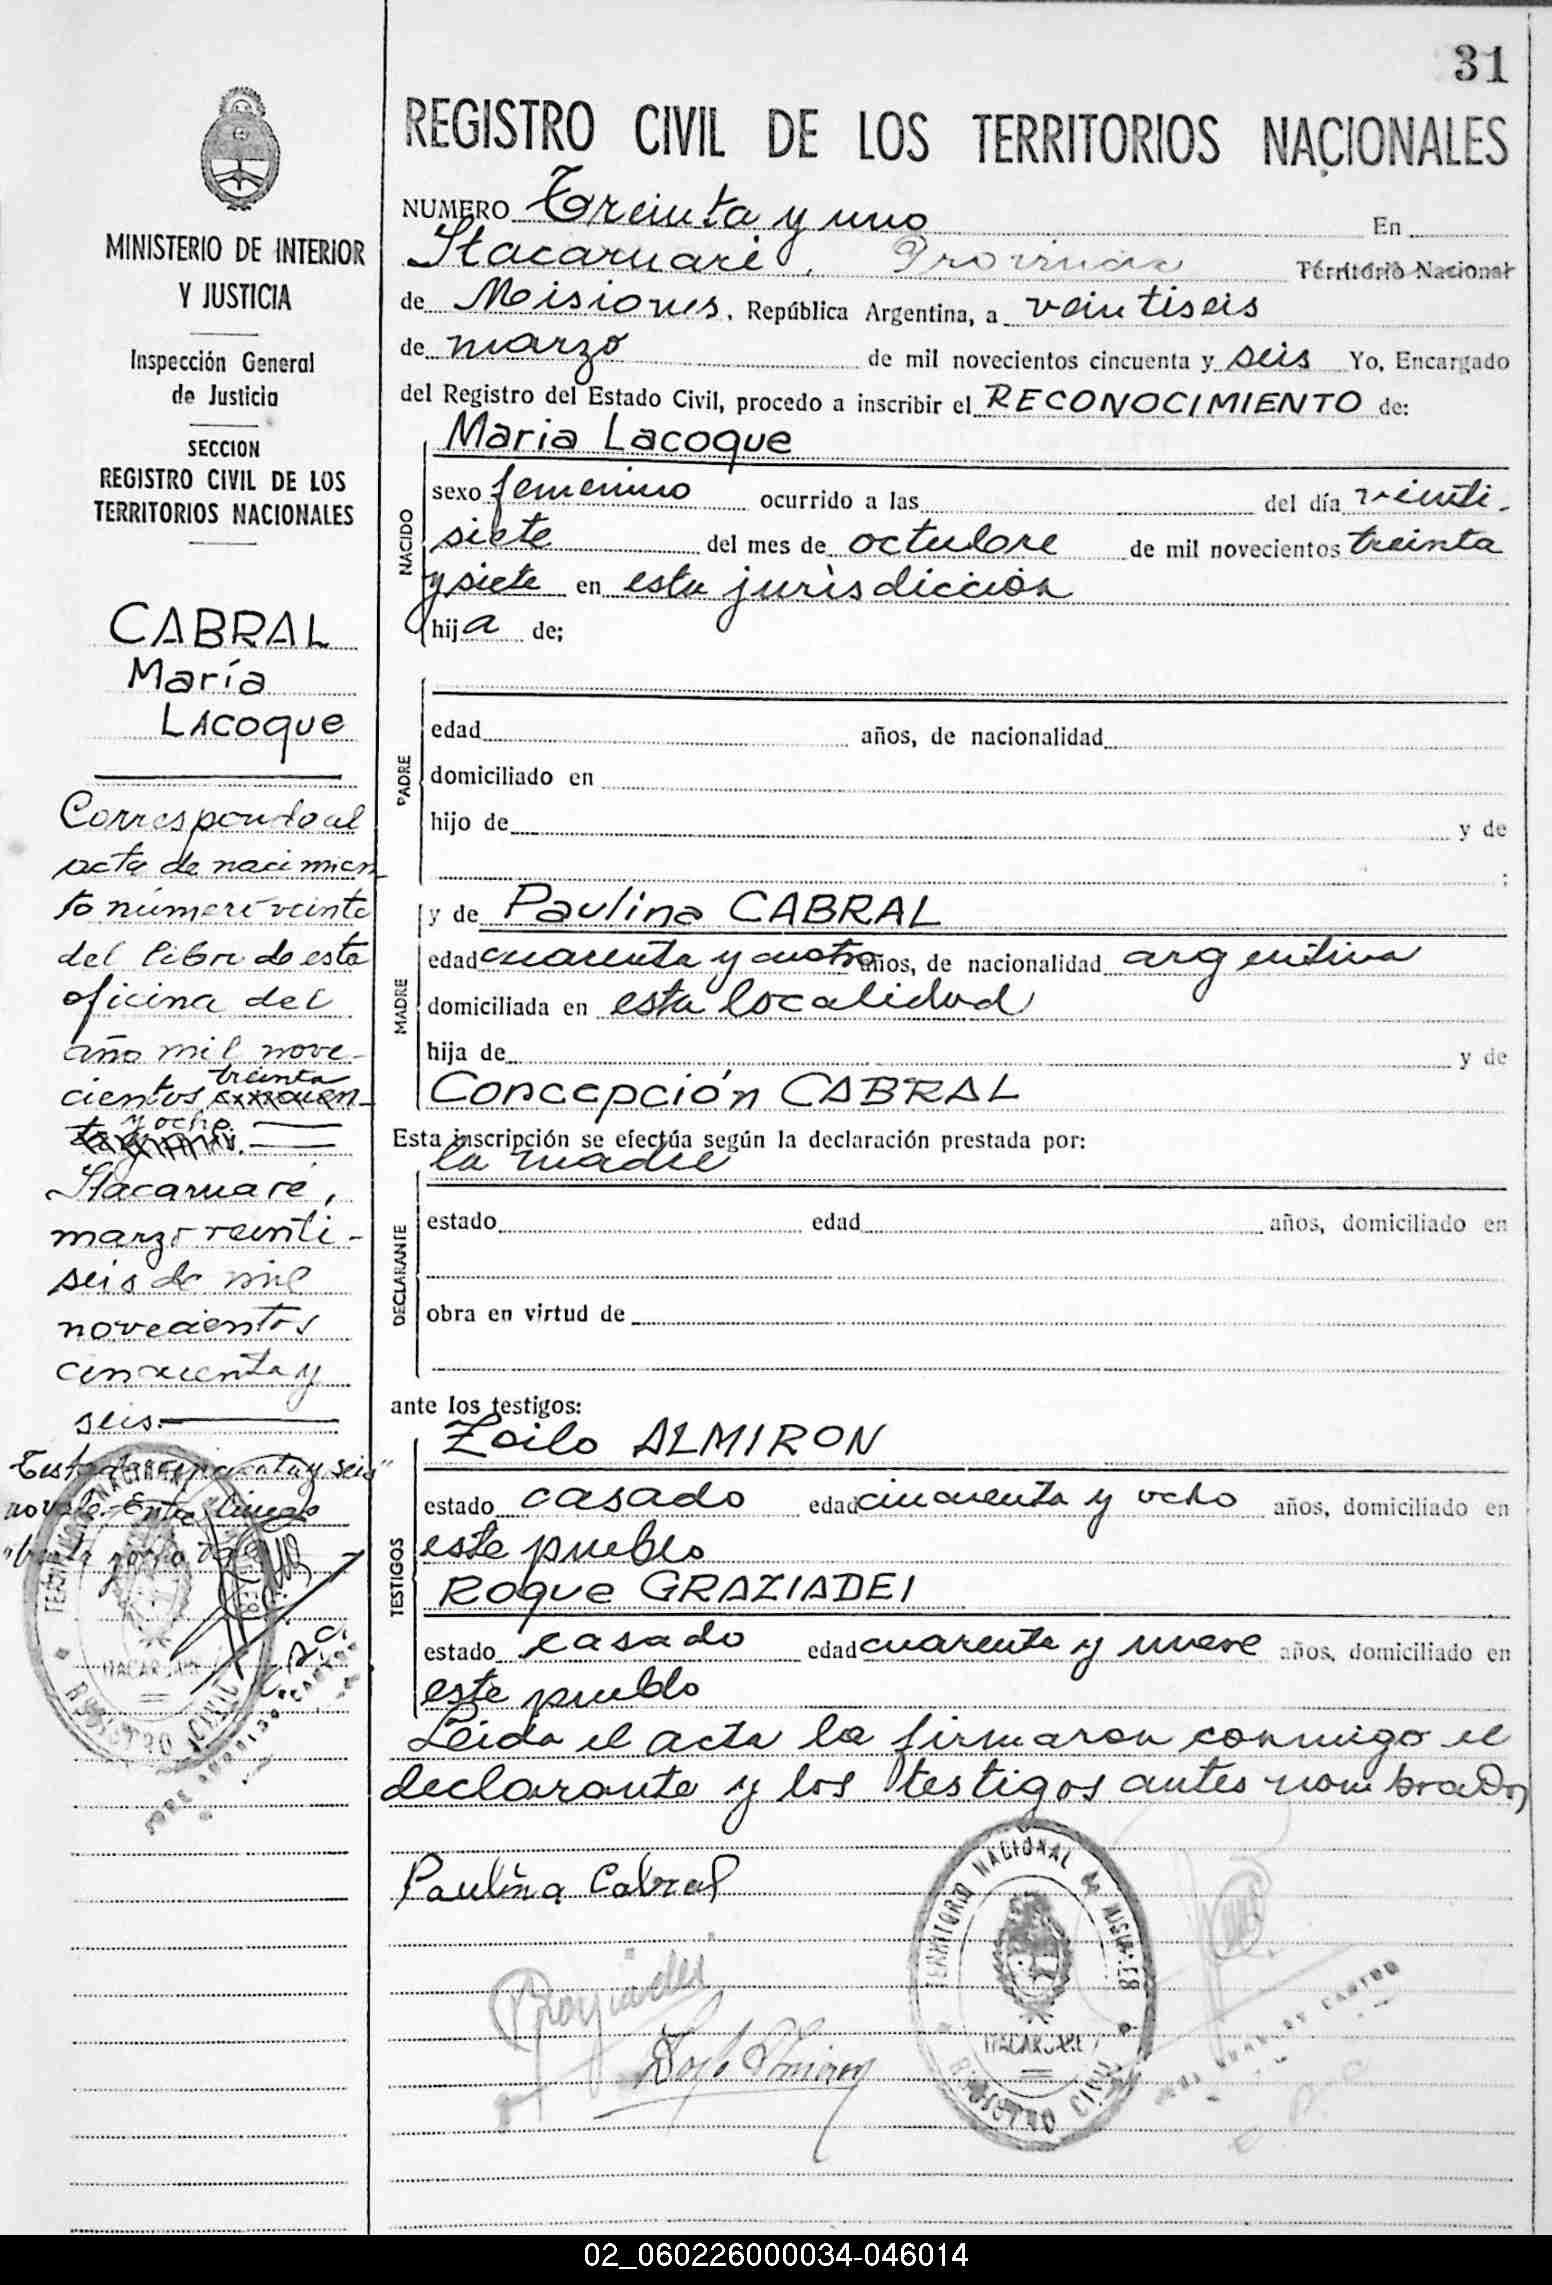 31
REGISTRO CIVIL DE LOS TERRITORIOS NACIONALES
MINISTERIO DE INTERIOR
Y JUSTICIA
Inspección General
de Justicia
SECCION
REGISTRO CIVIL DE LOS
TERRITORIOS NACIONALES
CABRAL
María
LACOQUE
Correspondo al
acta de nacimien
to número veinte
del libro de esta
oficina del
año mil nove-
treinta
cientos cincuen-
y ocho.
Itacaruaré,
marzo veinti-
seis de mil
novecientos
cincuenta y
seis.
NUMERO Treinta y uno En
Itacaruaré, Provincia Território Nacional
de Misiones, República Argentina, a veintiseis
de marzo de mil novecientos cincuenta y seis Yo, Encargado
del Registro del Estado Civil, procedo a inscribir el RECONOCIMIENTO de:
Maria Lacoque
NACIDO
sexo femenino ocurrido a las del día veinti-
siete del mes de octubre de mil novecientos treinta
y siete en esta jurisdicción
hija de;
PADRE
edad años, de nacionalidad
domiciliado en
hijo de y de
;
MADRE
y de Paulina CABRAL
edad cuarenta y cuatro años, de nacionalidad argentina
domiciliada en esta localidad
hija de y de
Concepción CABRAL
Esta inscripción se efectúa según la declaración prestada por:
la madre
DECLARANTE
estado edad años, domiciliado en
obra en virtud de
ante los testigos:
TESTIGOS
Zoilo ALMIRON
estado casado edad cincuenta y ocho años, domiciliado en
este pueblo
Roque GRAZIADEI
estado casado edad cuarenta y nueve años, domiciliado en
este pueblo
Leida el acta la firmaron conmigo el
declarante y los testigos antes nombrados
Paulina Cabral
TERRITORIO NACIONAL DE MISIONES
ITACARUARE
REGISTRO CIVIL
02_060226000034-046014